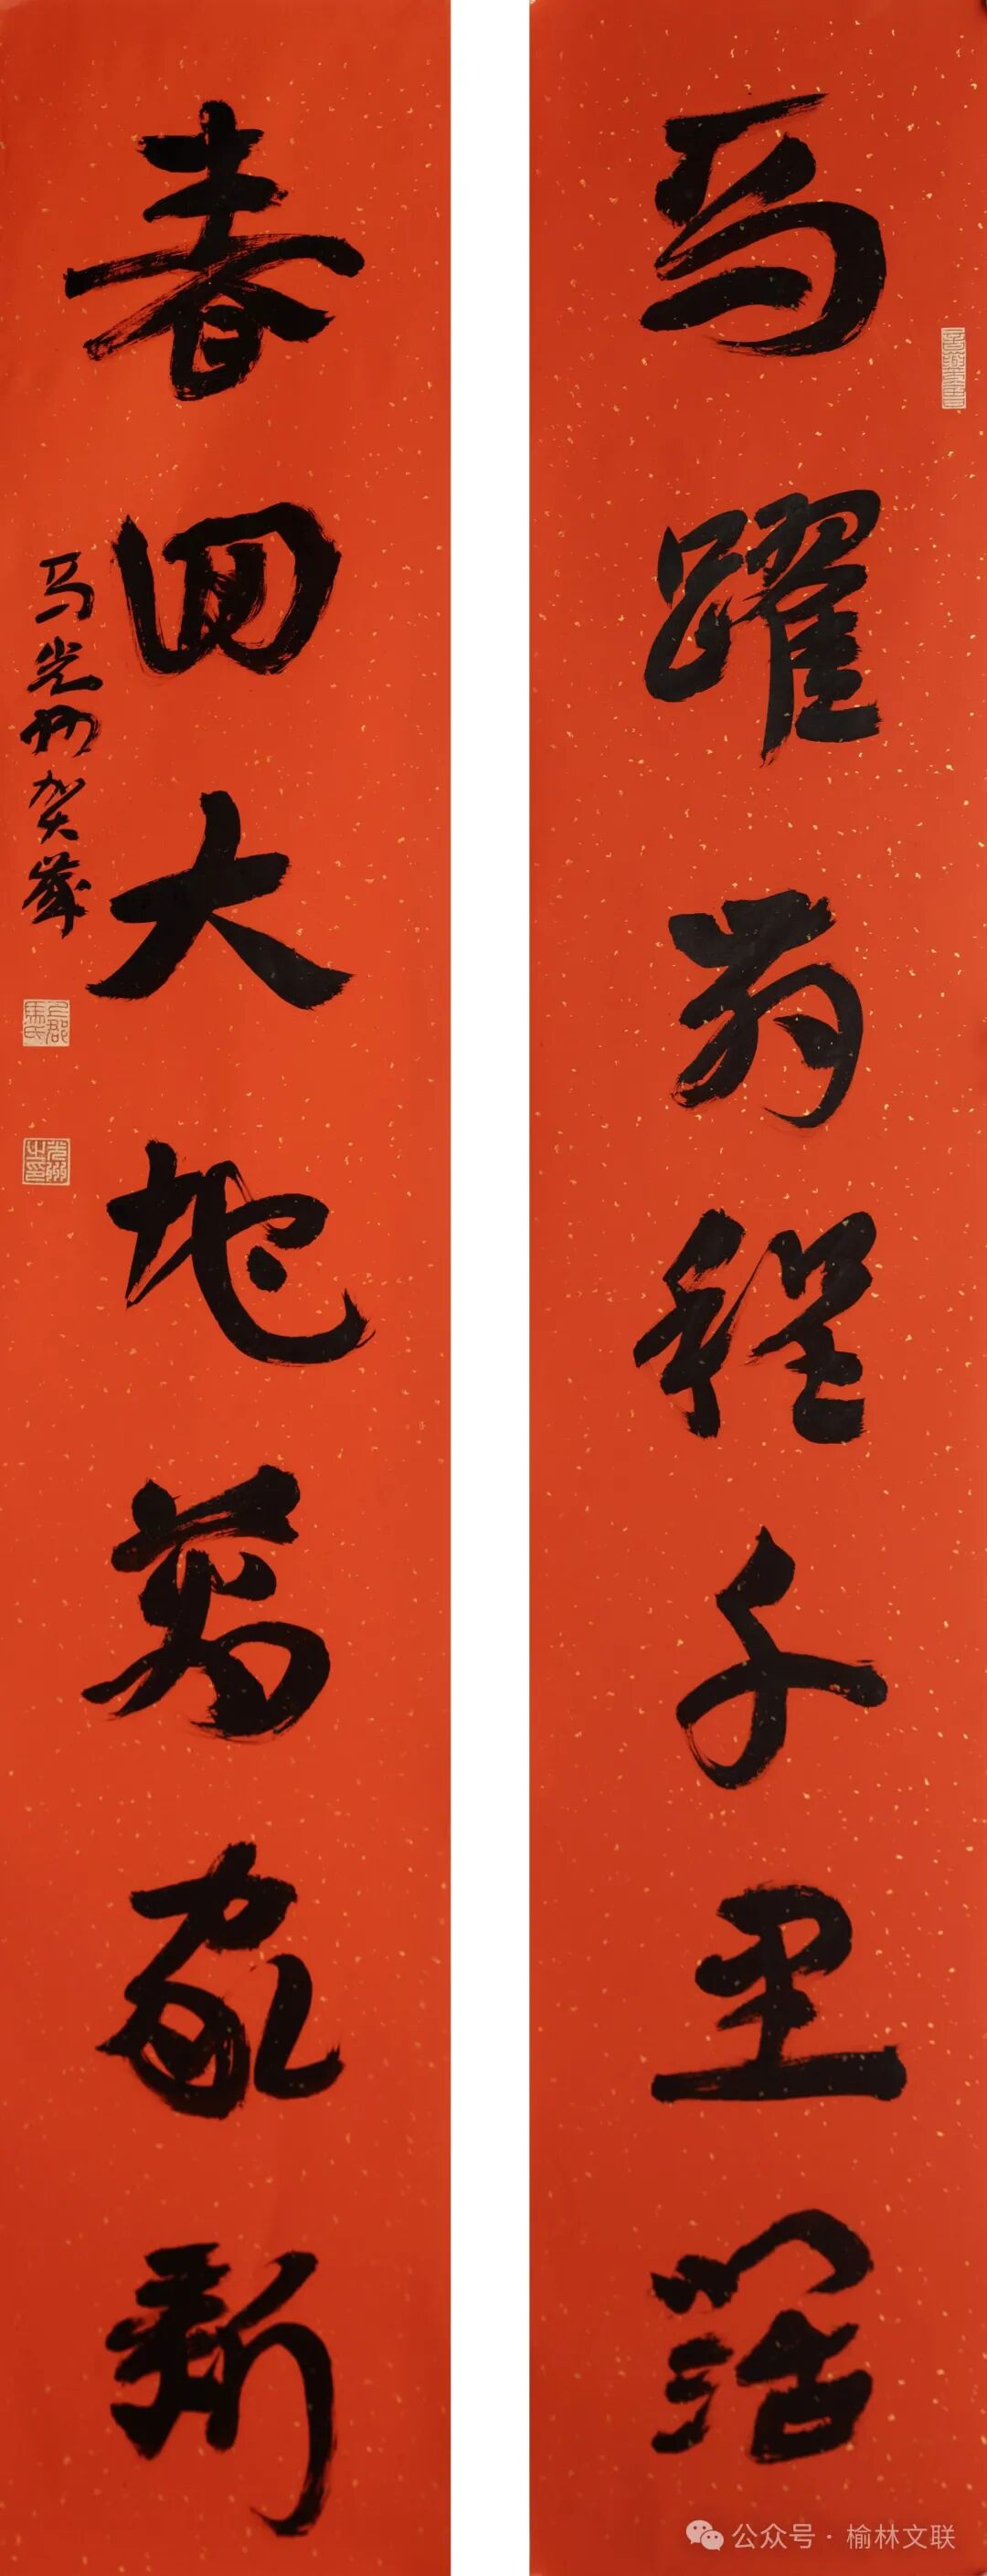 马跃前程千里阔
春回大地万家新
马光州贺岁
公众号·榆林文联